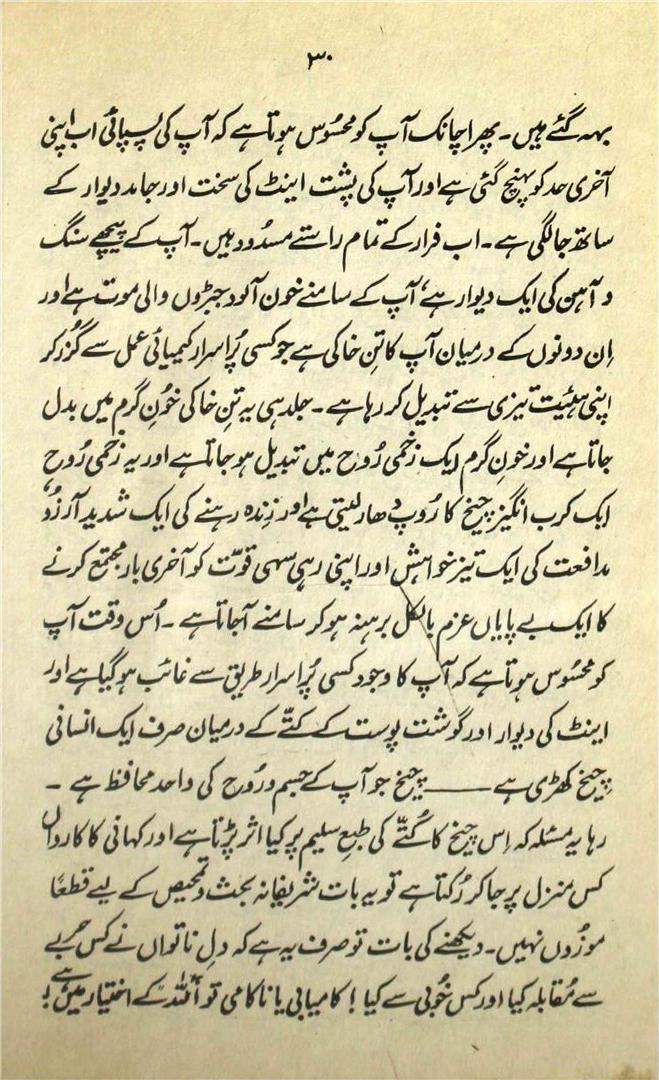 ۳۰
بہہ گئے ہیں۔ پھر اچانک آپ کو محسُوس ہوتا ہے کہ آپ کی پسپائی اب اپنی
آخری حد کو پہنچ گئی ہے اور آپ کی پشت اینٹ کی سخت اور جامد دیوار کے
ساتھ جا لگی ہے۔ اب فرار کے تمام راستے مسدُود ہیں۔ آپ کے پیچھے سنگ
و آہن کی ایک دیوار ہے، آپ کے سامنے خون آلود جبڑوں والی موت ہے اور
اِن دونوں کے درمیان آپ کا تنِ خاکی ہے جو کسی پُراسرار کیمیائی عمل سے گُزر کر
اپنی ہیئت تیزی سے تبدیل کر رہا ہے۔ جلد ہی یہ تنِ خاکی خُونِ گرم میں بدل
جاتا ہے اور خونِ گرم ایک زخمی رُوح میں تبدیل ہو جاتا ہے اور یہ زخمی رُوح
ایک کرب انگیز چیخ کا رُوپ دھار لیتی ہے اور زِندہ رہنے کی ایک شدید آرزُو،
مدافعت کی ایک تیز خواہش اور اپنی رہی سہی قوّت کو آخری بار مجتمع کرنے
کا ایک بے پایاں عزم بالکل برہنہ ہو کر سامنے آجاتا ہے۔ اُس وقت آپ
کو محسُوس ہوتا ہے کہ آپ کا وجود کسی پُراسرار طریق سے غائب ہو گیا ہے اور
اینٹ کی دیوار اور گوشت پوست کے کتّے کے درمیان صرف ایک انسانی
چیخ کھڑی ہے ـــــــ چیخ جو آپ کے جسم و رُوح کی واحد محافظ ہے ۔
رہا یہ مسئلہ کہ اِس چیخ کا کُتّے کی طبعِ سلیم پر کیا اثر پڑتا ہے اور کہانی کا کارواں
کس منزل پر جا کر رُکتا ہے تو یہ بات شریفانہ بحث و تمحیص کے لیے قطعًا
موزُوں نہیں۔ دیکھنے کی بات تو صرف یہ ہے کہ دلِ ناتواں نے کس حربے
سے مُقابلہ کیا اور کس خُوبی سے کیا! کامیابی یا ناکامی تو اللہ کے اختیار میں ہے!